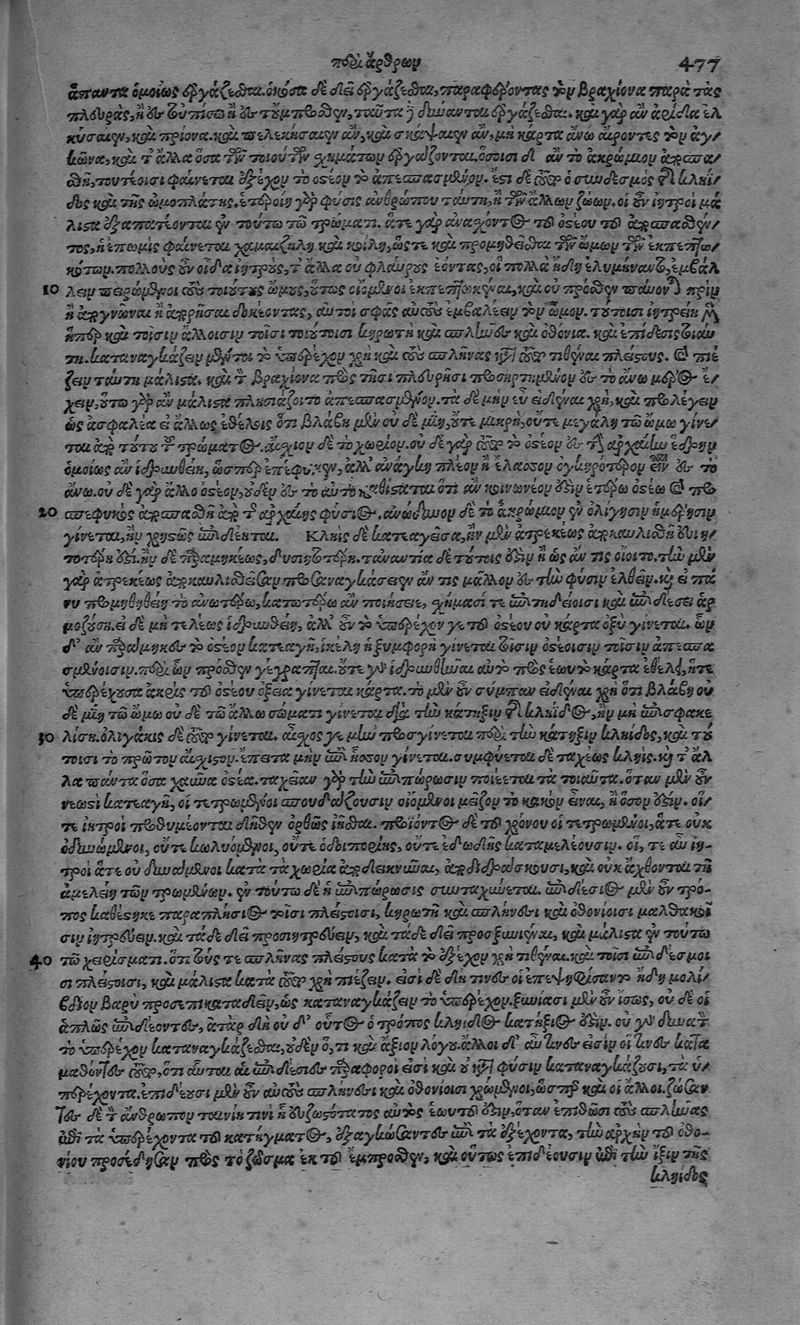 περὶ ἄρθρων 477
ἅπαντα ὁμοίως ἐργάζεσθαι. ὁκόσα δὲ δεῖ ἐργάζεσθαι, παραφέροντας τὸν βραχίονα παρὰ τὰς
πλευρὰς, ἢ ἐς τοὔπισθεν ἢ ἐς τοὔμπροσθεν, ταῦτα δύνανται ἐργάζεσθαι. καὶ γὰρ ἂν ἀρίδα ἑλ
κύσαιεν, καὶ πρίονα. καὶ πελεκήσαιεν ἂν, καὶ σκάψαιεν ἂν, μὴ κάρτα ἄνω αἴροντες τὸν ἀγ/
κῶνα, καὶ τὰ ἄλλα ὅσα ἐκ τῶν τοιούτων σχημάτων ἐργάζονται. ὅσοισι δ' ἂν τὸ ἀκρώμιον ἀποσπα/
σθῇ, τουτέοισι φαίνεται ἐξέχον τὸ ὀστέον τὸ ἀπεσπασμένον. ἔστι δὲ τοῦτο ὁ συνδεσμὸς τῆς κληῖ/
δος καὶ τῆς ὠμοπλάτης, ἑτεροίη γὰρ φύσις ἀνθρώπου ταύτῃ, ἢ τῶν ἄλλων ζώων. οἱ ἂν ἰητροὶ μά
λιστα ἐξαπατέονται ἐν τούτῳ τῷ τρώματι. ἅτε γὰρ ἀνασχόντος τοῦ ὀστέου τοῦ ἀποσπασθέν/
τος, ἡ ἐπωμὶς φαίνεται χαμαιζήλη καὶ κοίλη, ὥστε καὶ προμηθεῖσθαι τῶν ὤμων τῶν ἐκπεπτω/
10 κότων. πολλοὺς οὖν οἶδα ἰητροὺς, τὰ ἄλλα οὐ φλαύρους ἐόντας, οἳ πολλὰ ἤδη ἐλυμήναντο, ἐμβάλ
λειν πειρώμενοι τοὺς τοιούτους ὤμους, οὕτως οἰόμενοι ἐκπεπτωκέναι, καὶ οὐ πρόσθεν παύονται πρὶν
ἢ ἀπογνῶναι ἢ ἀπορῆσαι δοκέοντας, αὐτοὶ σφᾶς αὐτοὺς ἐμβάλλειν τὸν ὦμον. τούτοισι ἰητρείη μὲν
ἥπερ καὶ τοῖσιν ἄλλοισιν τοῖσι τοιούτοισι κηρωτὴ καὶ σπλῆνες καὶ ὀθόνια. καὶ ἐπίδεσις τοιαύ
τη. καταναγκάζειν μέντοι τὸ ὑπερέχον χρὴ καὶ τοὺς σπλῆνας κατὰ τοῦτο τιθέναι πλείστους. καὶ πιέ
ζειν ταύτῃ μάλιστα. καὶ τὸν βραχίονα πρὸς τῇσι πλευρῇσι προσηρτημένον ἐς τὸ ἄνω μέρος ἔ/
χειν, οὕτω γὰρ ἂν μάλιστα πλησιάζοι τὸ ἀπεσπασμένον. τὰ δὲ μὴν εὖ εἰδέναι χρὴ, καὶ προλέγειν
ὡς ἀσφαλέα εἰ ἄλλως ἐθέλεις ὅτι βλάβη μὲν οὐ δὲ μίη, οὔτε μικρὴ, οὔτε μεγάλη τῷ ὤμῳ γίνε/
ται ἀπὸ τούτου τοῦ τρώματος. αἴσχιον δὲ τὸ χωρίον. οὐ δὲ γὰρ τοῦτο τὸ ὀστέον ἐς τὴν ἀρχαίην ἕδρην
ὁμοίως ἂν ἱδρυνθείη, ὥσπερ ἐπεφύκεν, ἀλλ' ἀνάγκη πλέον ἢ ἔλασσον ὀγκηρότερον εἶναι ἐς τὸ
ἄνω. οὐ δὲ γὰρ ἄλλο ὀστέον, οὐδὲν ἐς τὸ αὐτὸ καθίσταται ὅτι ἂν κοινωνέον ᾖ ἑτέρῳ ὀστέῳ καὶ προ
20 σπεφυκὸς ἀποσπασθῇ ἀπὸ τῆς ἀρχαίης φύσιος. ἀνώδυνον δὲ τὸ ἀκρώμιον ἐν ὀλίγῃσιν ἡμέρῃσιν
γίνεται, ἢν χρηστῶς ἐπιδέηται. Κληῒς δὲ κατεαγεῖσα, ἢν μὲν ἀτρεκέως ἀποκαυλισθῇ εὐιη/
τοτέρη ἐστί. ἢν δὲ παραμηκέως, δυσιητοτέρη. τἀναντία δὲ τούτοις ἐστὶν ἢ ὡς ἄν τις οἴοιτο. τὴν μὲν
γὰρ ἀτρεκέως ἀποκαυλισθεῖσαν προσαναγκάσειεν ἄν τις μᾶλλον ἐς τὴν φύσιν ἐλθεῖν. καὶ εἰ πά
νυ προμηθηθείη τὸ ἀνωτέρω, κατωτέρω ἂν ποιήσειε, σχήμασί τε ἐπιτηδείοισι καὶ ἐπιδέσει ἁρ
μοζούσῃ. εἰ δὲ μὴ τελέως ἱδρυνθείη, ἀλλ' οὖν τὸ ὑπερέχον γε τοῦ ὀστέου οὐ κάρτα ὀξὺ γίνεται. ὧν
δ' ἂν παραμηκὲς τὸ ὀστέον κατεαγῇ, ἰκέλη ἡ ξυμφορὴ γίνεται τοῖσιν ὀστέοισιν τοῖσιν ἀπεσπα
σμένοισιν. περὶ ὧν πρόσθεν γέγραπται. οὔτε γὰρ ἱδρυνθῆναι αὐτὸ πρὸς ἑωυτὸ κάρτα ἐθέλει, ἥτε
ὑπερέχουσα ἀκρὶς τοῦ ὀστέου ὀξεία γίνεται κάρτα. τὸ μὲν οὖν σύμπαν εἰδέναι χρὴ ὅτι βλάβη οὐ
δὲ μίη τῷ ὤμῳ οὐ δὲ τῷ ἄλλῳ σώματι γίνεται διὰ τὴν κάτηξιν τῆς κληῖδος, ἢν μὴ ἐπισφακε
30 λίσῃ. ὀλιγάκις δὲ τοῦτο γίνεται. αἶσχος γε μὴν προσγίνεται περὶ τὴν κάτηξιν κληῖδος, καὶ τού
τοισι τὸ πρῶτον αἴσχιστον. ἔπειτα μὴν ἐπὶ ἧσσον γίνεται. συμφύεται δὲ ταχέως κληῒς. καὶ τὰ ἄλ
λα πάντα ὅσα χαῦνα ὀστέα. ταχείαν γὰρ τὴν ἐπιπώρωσιν ποιέεται τὰ τοιαῦτα. ὅταν μὲν οὖν
νεωστὶ κατεαγῇ, οἱ τετρωμένοι σπουδάζουσιν οἰόμενοι μεῖζον τὸ κακὸν εἶναι, ἢ ὅσον ἐστίν. οἵ/
τε ἰητροὶ προθυμέονται δῆθεν ὀρθῶς ἰῆσθαι. προϊόντος δὲ τοῦ χρόνου οἱ τετρωμένοι, ἅτε οὐκ
ὀδυνώμενοι, οὔτε κωλυόμενοι, οὔτε ὁδοιπορίης, οὔτε ἐδωδῆς καταμελέουσιν. οἵ, τε αὖ ἰη/
τροὶ ἅτε οὐ δυνάμενοι καλὰ τὰ χωρία ἀποδεικνύναι, ἀποδιδράσκουσι, καὶ οὐκ ἄχθονται τῇ
ἀμελείῃ τῶν τρωμένων. ἐν τούτῳ δὲ ἡ ἐπιπώρωσις συνταχύνεται. ἐπιδέσιος μὲν οὖν τρό/
πος καθέστηκε παραπλήσιος τοῖσι πλείστοισι, κηρωτῇ καὶ σπλήνεσι καὶ ὀθονίοισι μαλθακοῖ
σιν ἰητρεύειν. καὶ τάδε δεῖ προσιητρεύειν, καὶ τάδε δεῖ προσξυνιέναι, καὶ μάλιστα ἐν τούτῳ
40 τῷ χειρίσματι. ὅτι τούς τε σπλῆνας πλείστους κατὰ τὸ ἐξέχον χρὴ τιθέναι. καὶ τοῖσι ἐπιδέσμοι
σι πλείστοισι, καὶ μάλιστα κατὰ τοῦτο χρὴ πιέζειν. εἰσὶ δὲ δή τινες οἳ ἐπεψηφίσαντο ἤδη μολί/
βδιον βαρὺ προσεπικαταδεῖν, ὡς καταναγκάζειν τὸ ὑπερέχον. ξυνίασι μὲν οὖν ἴσως, οὐ δὲ οἱ
ἁπλῶς ἐπιδέοντες, ἀτὰρ δὴ οὐ δ' οὗτος ὁ τρόπος κληῖδος κατήξιος ἐστιν. οὐ γὰρ δυνατὸν
τὸ ὑπερέχον καταναγκάζεσθαι, οὐδὲν ὅ, τι καὶ ἄξιον λόγου. ἄλλοι δ' αὖ τινες εἰσὶν οἵτινες κατα
μαθόντες τοῦτο, ὅτι αὗται αἱ ἐπιδέσιες παράφοροί εἰσι καὶ οὐ κατὰ φύσιν καταναγκάζουσι, τὰ ὑ/
περέχοντα. ἐπιδέουσι μὲν οὖν αὐτοὺς σπλήνεσι καὶ ὀθονίοισι χρώμενοι, ὥσπερ καὶ οἱ ἄλλοι. ζώσαν
τες δὲ τὸν ἄνθρωπον ταινίῃ τινὶ ᾗ εὐζωστότατος αὐτὸς ἑωυτοῦ ἐστιν, ὅταν ἐπιθῶσι τοὺς σπλῆνας
ἐπὶ τὰ ὑπερέχοντα τοῦ κατήγματος, ἐξαλμώσαντες ἐπὶ τὰ ἐξέχοντα, τὴν ἀρχὴν τοῦ ὀθο-
νίου προσέδησαν πρὸς τὸ ζῶσμα ἐκ τοῦ ἔμπροσθεν, καὶ οὕτως ἐπιδέουσιν ἐπὶ τὴν ἴξιν τῆς
κληῖδος